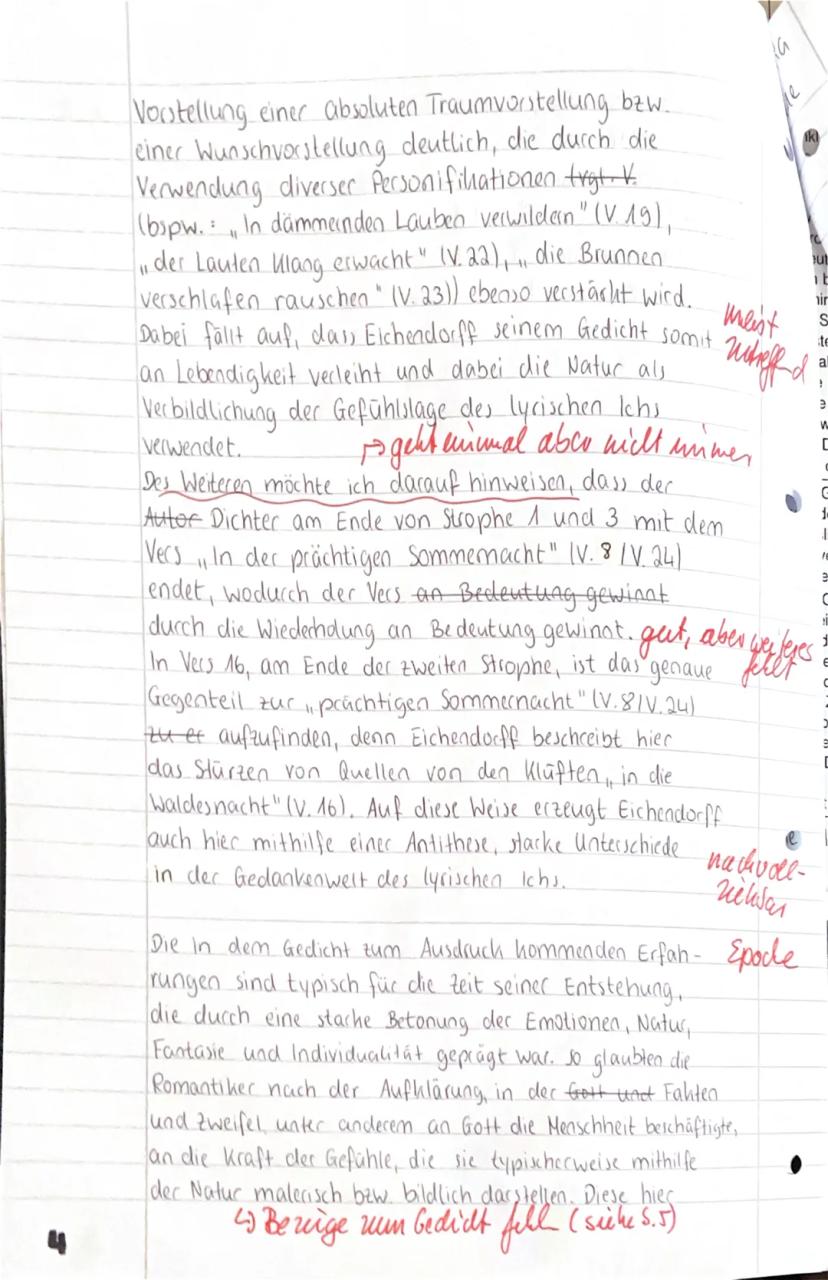 Vorstellung einer absoluten Traumvorstellung bzw.
einer Wunschvorstellung deutlich, die durch die
Verwendung diverser Personifikationen trgt. V.
(bspw.: „In dämmernden Lauben verwildern" (V. 19),
„der Lauten Klang erwacht" (V. 22), „die Brunnen
verschlafen rauschen" (V. 23)) ebenso verstärkt wird.
Dabei fällt auf, dass Eichendorff seinem Gedicht somit
meist
zutreffend
an Lebendigkeit verleiht und dabei die Natur als
Verbildlichung der Gefühlslage des lyrischen Ichs
verwendet.
↦ geht einmal aber nicht immer
Des Weiteren möchte ich darauf hinweisen, dass der
Autor Dichter am Ende von Strophe 1 und 3 mit dem
Vers „In der prächtigen Sommernacht" (V. 8 / V. 24)
endet, wodurch der Vers an Bedeutung gewinnt
durch die Wiederholung an Bedeutung gewinnt. gut, aber weiteres
fehlt
In Vers 16, am Ende der zweiten Strophe, ist das genaue
Gegenteil zur „prächtigen Sommernacht" (V. 8/V. 24)
zu er aufzufinden, denn Eichendorff beschreibt hier
das Stürzen von Quellen von den Klüften „in die
Waldesnacht" (V. 16). Auf diese Weise erzeugt Eichendorff
auch hier mithilfe einer Antithese, starke Unterschiede
in der Gedankenwelt des lyrischen Ichs.
nachvoll-
ziehbar
Die in dem Gedicht zum Ausdruck kommenden Erfah-
Epoche
rungen sind typisch für die Zeit seiner Entstehung,
die durch eine starke Betonung der Emotionen, Natur,
Fantasie und Individualität geprägt war. So glaubten die
Romantiker nach der Aufklärung, in der Gott und Fakten
und Zweifel unter anderem an Gott die Menschheit beschäftigte,
an die Kraft der Gefühle, die sie typischerweise mithilfe
der Natur malerisch bzw. bildlich darstellen. Diese hier
↳ Bezüge zum Gedicht fehlen (siehe S. 5)
4